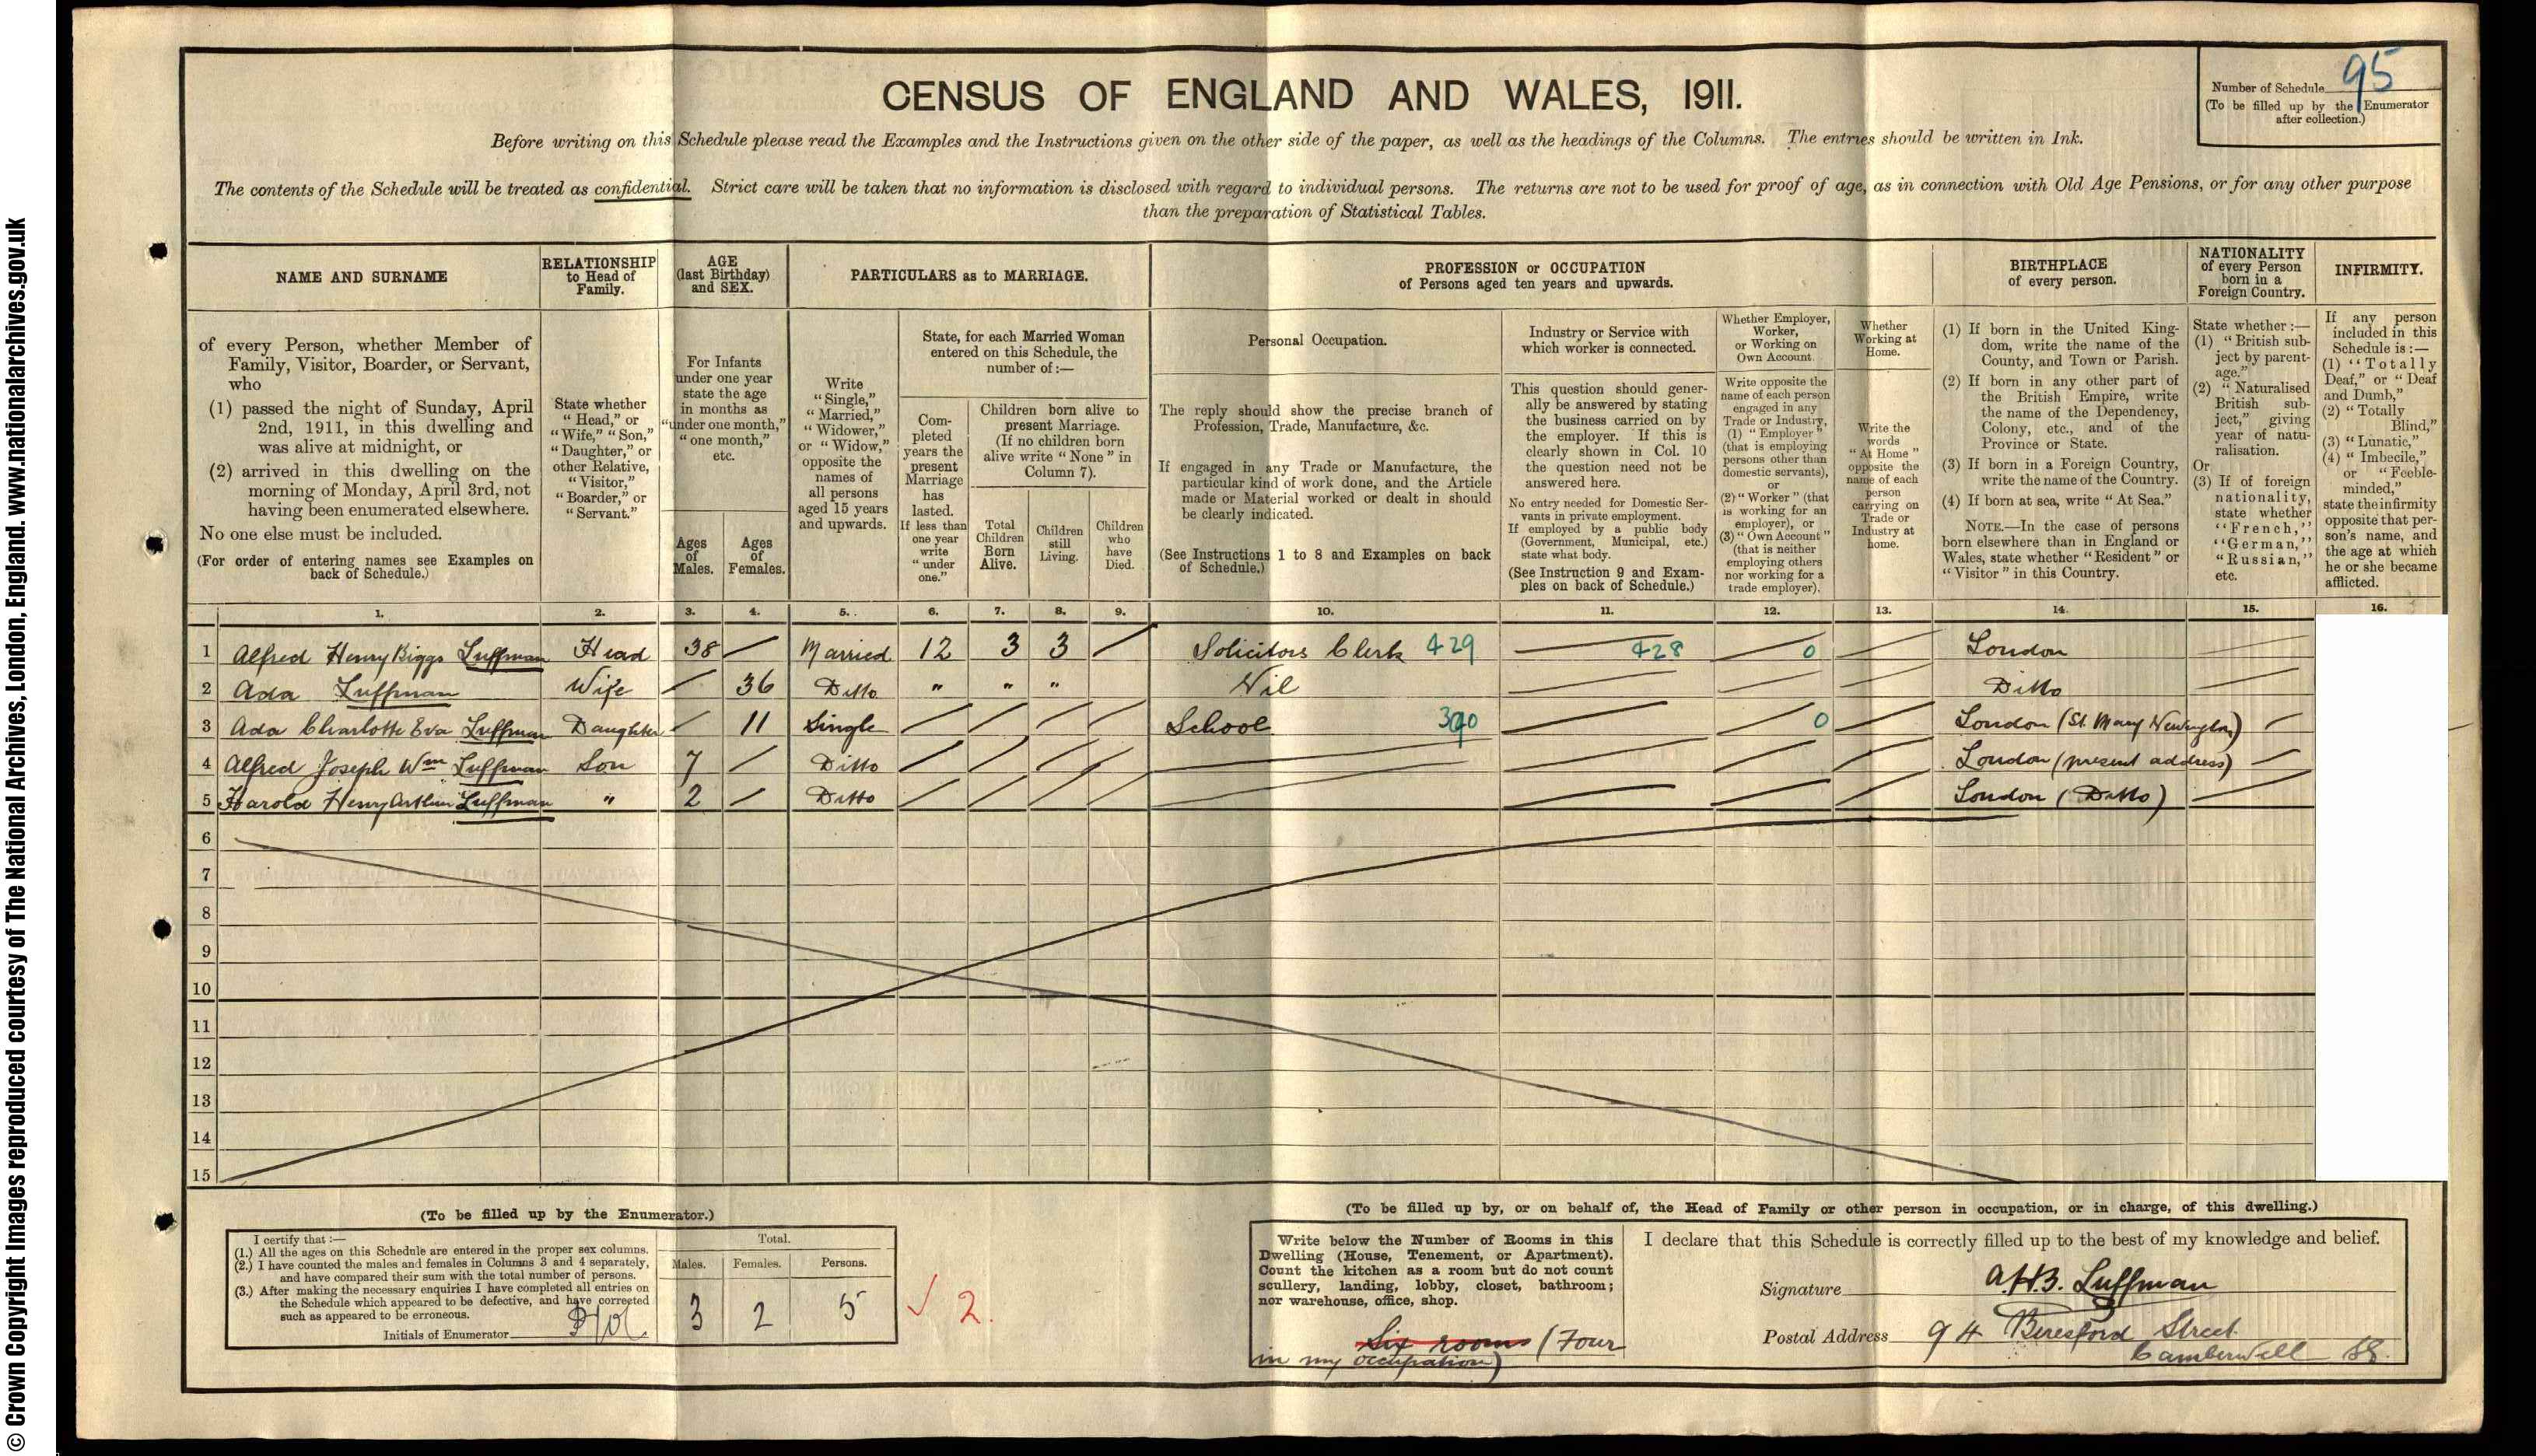 © Crown Copyright Images reproduced courtesy of The National Archives, London, England. www.nationalarchives.gov.uk
CENSUS OF ENGLAND AND WALES, 1911.
Number of Schedule 95
(To be filled up by the Enumerator
after collection.)
Before writing on this Schedule please read the Examples and the Instructions given on the other side of the paper, as well as the headings of the Columns. The entries should be written in Ink.
The contents of the Schedule will be treated as confidential. Strict care will be taken that no information is disclosed with regard to individual persons. The returns are not to be used for proof of age, as in connection with Old Age Pensions, or for any other purpose
than the preparation of Statistical Tables.
NAME AND SURNAME
of every Person, whether Member of
Family, Visitor, Boarder, or Servant,
who
(1) passed the night of Sunday, April
2nd, 1911, in this dwelling and
was alive at midnight, or
(2) arrived in this dwelling on the
morning of Monday, April 3rd, not
having been enumerated elsewhere.
No one else must be included.
(For order of entering names see Examples on
back of Schedule.)
RELATIONSHIP
to Head of
Family.
State whether
“Head,” or
“Wife,” “Son,”
“Daughter,” or
other Relative,
“Visitor,”
“Boarder,” or
“Servant.”
AGE
(last Birthday)
and SEX.
For Infants
under one year
state the age
in months as
“under one month,”
“one month,”
etc.
Ages
of
Males.
Ages
of
Females.
PARTICULARS as to MARRIAGE.
Write
“Single,”
“Married,”
“Widower,”
or “Widow,”
opposite the
names of
all persons
aged 15 years
and upwards.
State, for each Married Woman
entered on this Schedule, the
number of :—
Com-
pleted
years the
present
Marriage
has
lasted.
If less than
one year
write
“under
one.”
Children born alive to
present Marriage.
(If no children born
alive write “None” in
Column 7).
Total
Children
Born
Alive.
Children
still
Living.
Children
who
have
Died.
PROFESSION or OCCUPATION
of Persons aged ten years and upwards.
Personal Occupation.
The reply should show the precise branch of
Profession, Trade, Manufacture, &c.
If engaged in any Trade or Manufacture, the
particular kind of work done, and the Article
made or Material worked or dealt in should
be clearly indicated.
(See Instructions 1 to 8 and Examples on back
of Schedule.)
Industry or Service with
which worker is connected.
This question should gener-
ally be answered by stating
the business carried on by
the employer. If this is
clearly shown in Col. 10
the question need not be
answered here.
No entry needed for Domestic Ser-
vants in private employment.
If employed by a public body
(Government, Municipal, etc.)
state what body.
(See Instruction 9 and Exam-
ples on back of Schedule.)
Whether Employer,
Worker,
or Working on
Own Account.
Write opposite the
name of each person
engaged in any
Trade or Industry,
(1) “Employer”
(that is employing
persons other than
domestic servants),
or
(2) “Worker” (that
is working for an
employer), or
(3) “Own Account”
(that is neither
employing others
nor working for a
trade employer).
Whether
Working at
Home.
Write the
words
“At Home”
opposite the
name of each
person
carrying on
Trade or
Industry at
home.
BIRTHPLACE
of every person.
(1) If born in the United King-
dom, write the name of the
County, and Town or Parish.
(2) If born in any other part of
the British Empire, write
the name of the Dependency,
Colony, etc., and of the
Province or State.
(3) If born in a Foreign Country,
write the name of the Country.
(4) If born at sea, write “At Sea.”
NOTE.—In the case of persons
born elsewhere than in England or
Wales, state whether “Resident” or
“Visitor” in this Country.
NATIONALITY
of every Person
born in a
Foreign Country.
State whether :—
(1) “British sub-
ject by parent-
age.”
(2) “Naturalised
British sub-
ject,” giving
year of natu-
ralisation.
Or
(3) If of foreign
nationality,
state whether
“French,”
“German,”
“Russian,”
etc.
INFIRMITY.
If any person
included in this
Schedule is :—
(1) “Totally
Deaf,” or “Deaf
and Dumb,”
(2) “Totally
Blind,”
(3) “Lunatic,”
(4) “Imbecile,”
or “Feeble-
minded,”
state the infirmity
opposite that per-
son's name, and
the age at which
he or she became
afflicted.
1. 2. 3. 4. 5. 6. 7. 8. 9. 10. 11. 12. 13. 14. 15. 16.
1 Alfred Henry Biggs Luffman Head 38 Married 12 3 3 Solicitors Clerk 429 428 0 London
2 Ada Luffman Wife 36 Ditto " " " Nil Ditto
3 Ada Charlotte Eva Luffman Daughter 11 Single School 390 0 London (St. Mary Newington)
4 Alfred Joseph Wm Luffman Son 7 Ditto London (present address)
5 Harold Henry Arthur Luffman " 2 Ditto London (Ditto)
6
7
8
9
10
11
12
13
14
15
(To be filled up by the Enumerator.)
I certify that :—
(1.) All the ages on this Schedule are entered in the proper sex columns.
(2.) I have counted the males and females in Columns 3 and 4 separately,
and have compared their sum with the total number of persons.
(3.) After making the necessary enquiries I have completed all entries on
the Schedule which appeared to be defective, and have corrected
such as appeared to be erroneous.
Initials of Enumerator
Total.
Males. Females. Persons.
3 2 5
✓ 2.
(To be filled up by, or on behalf of, the Head of Family or other person in occupation, or in charge, of this dwelling.)
Write below the Number of Rooms in this
Dwelling (House, Tenement, or Apartment).
Count the kitchen as a room but do not count
scullery, landing, lobby, closet, bathroom;
nor warehouse, office, shop.
Six rooms (Four
in my occupation)
I declare that this Schedule is correctly filled up to the best of my knowledge and belief.
Signature A.H.B. Luffman
Postal Address 94 Beresford Street
Camberwell SE.